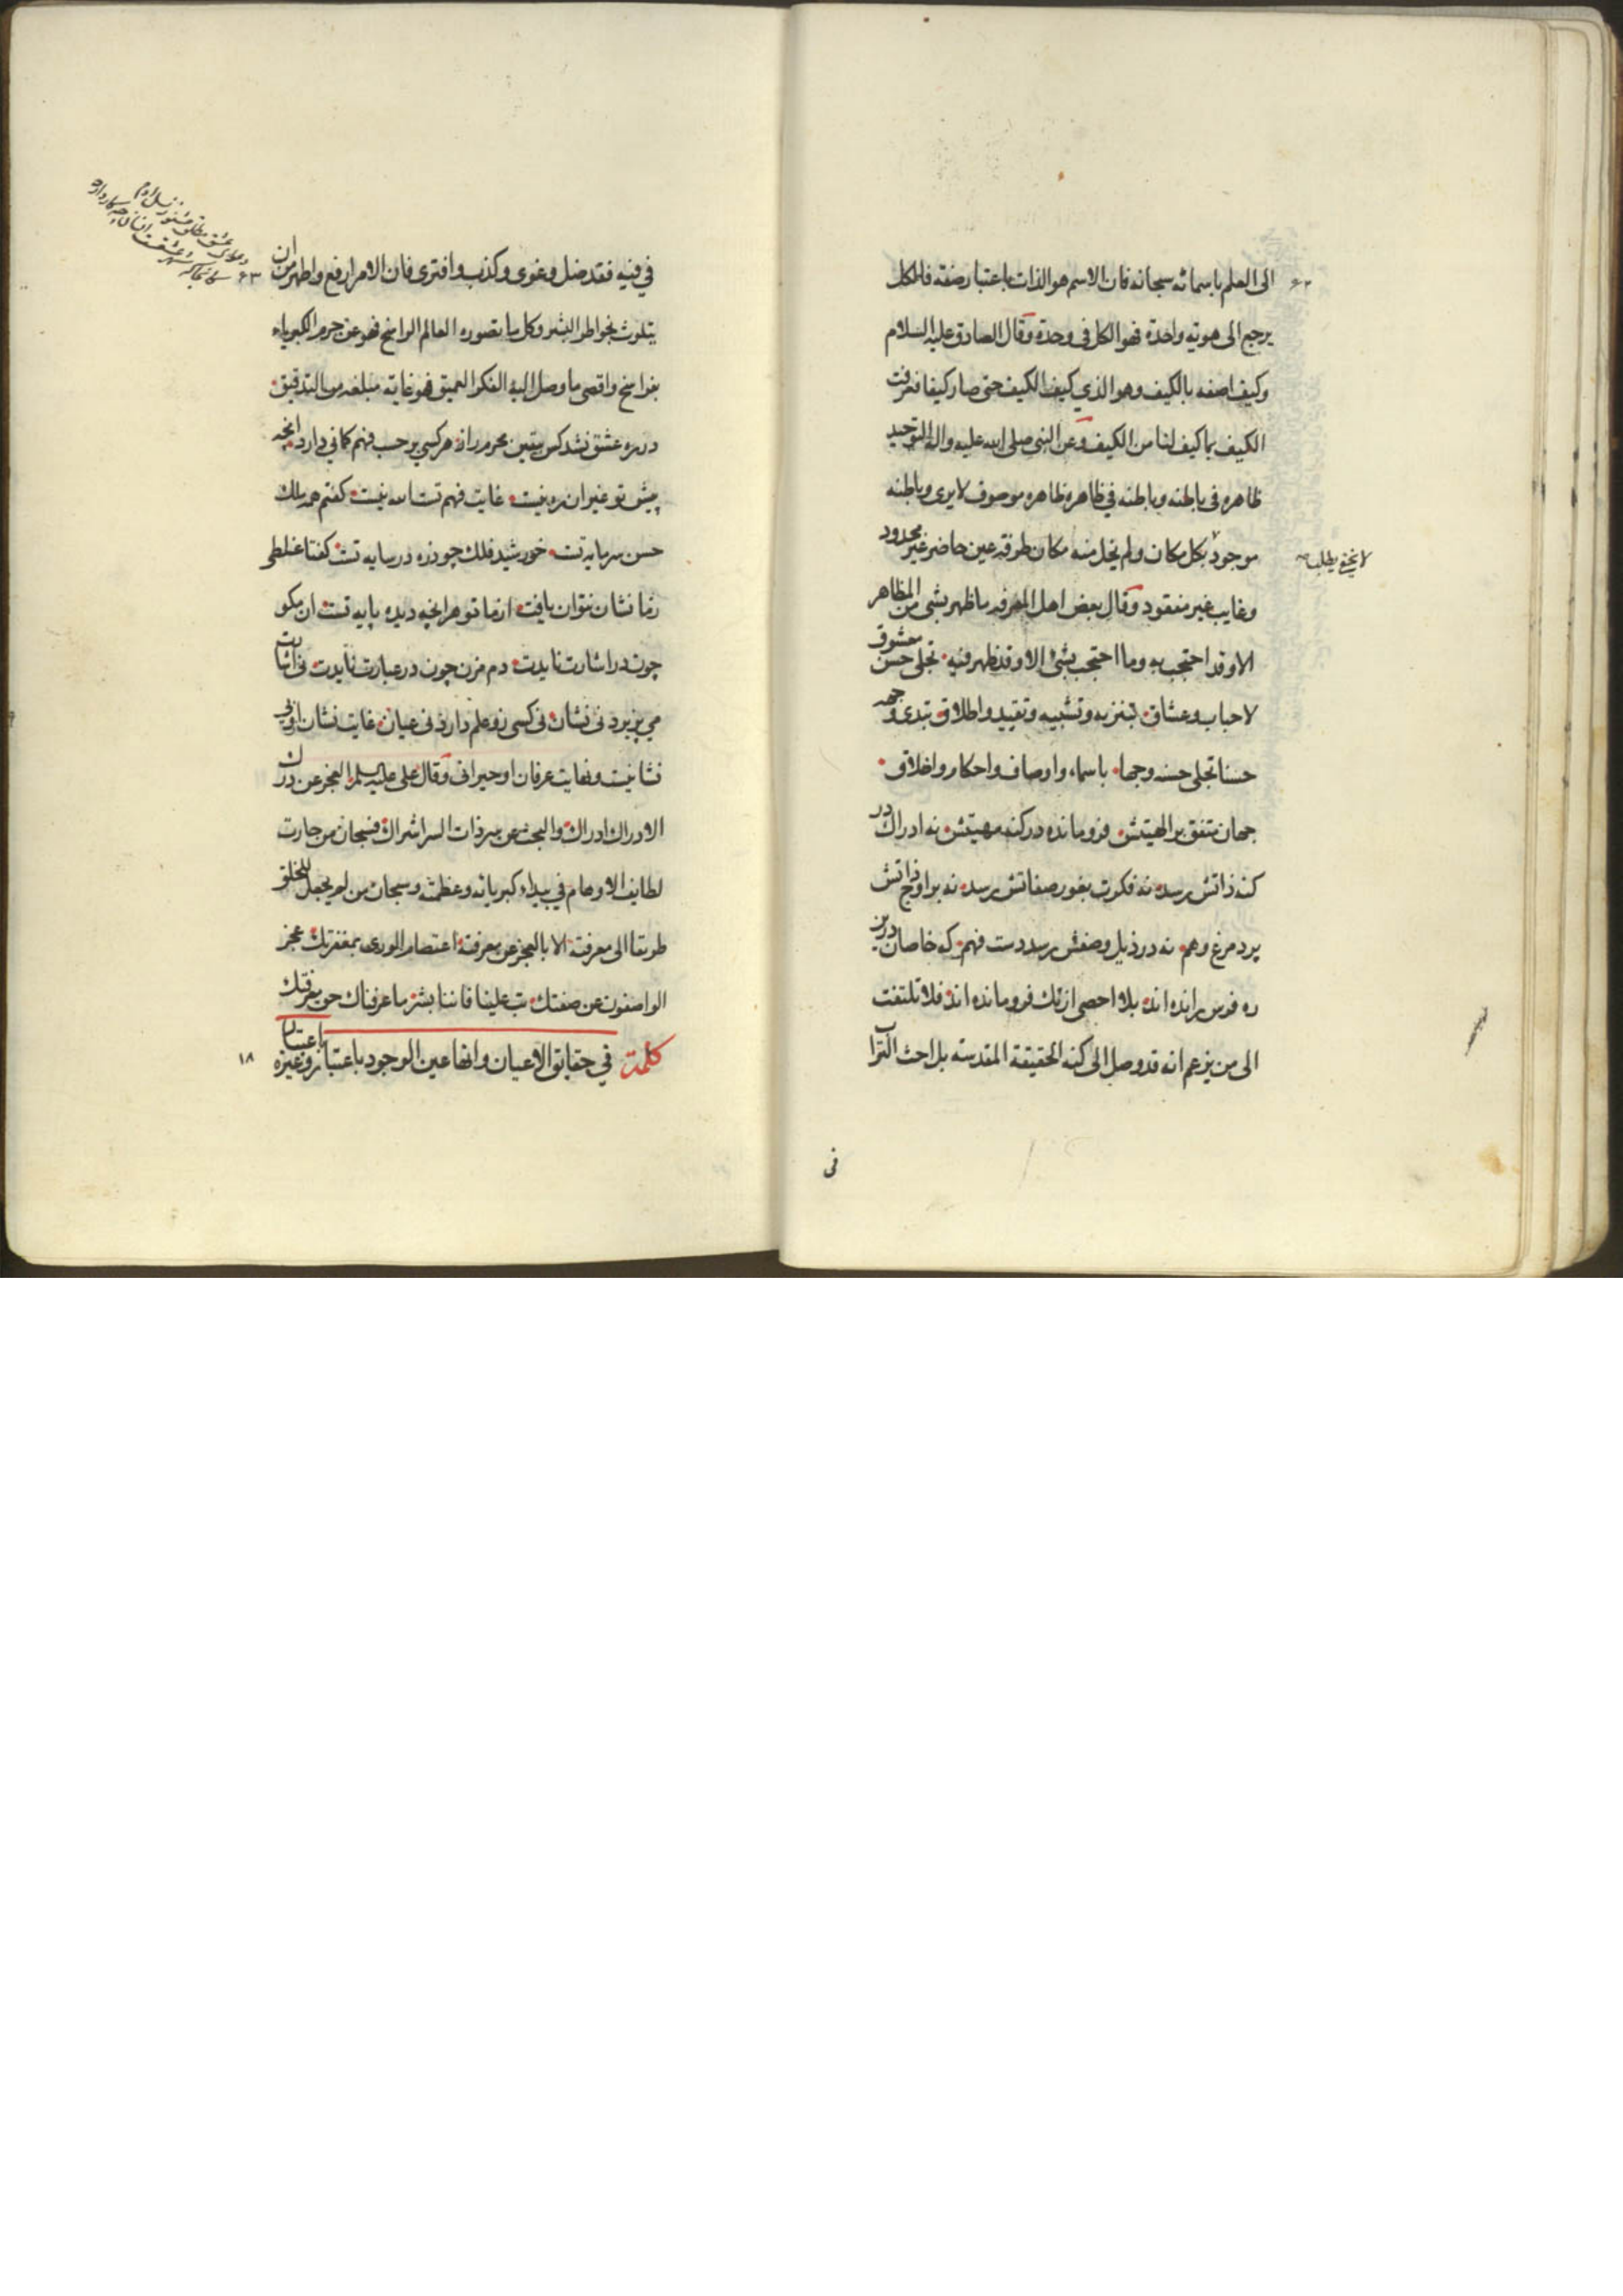 الى العلم باسمائه سبحانه فان الاسم هو الذات باعتبار صفته فالكل
يرجع الى هويته واحدة فهو الكل فى وحدة وقال الصادق عليه السلام
وكيف اصفه بالكيف وهو الذي كيف الكيف حتى صار كيفا فعرفت
الكيف بما كيف لنا من الكيف وعن النبى صلى الله عليه واله التوحيد
ظاهره فى باطنه وباطنه في ظاهره ظاهره موصوف لا يرى وباطنه
موجود بكل مكان ولم يخل منه مكان طرفة عين حاضر غير محدود
وغايب غير مفقود وقال بعض اهل المعرفه ما ظهر بشى من المظاهر
الا وقد احتجب به وما احتجب بشئ الا وقد ظهر فيه تجلى حسن معشوق
لاحباب وعشاق بتنزيه وتشبيه وتقييد واطلاق تبدى وجهه
حسنا تجلى حسنه وجها باسماء واوصاف واحكام واخلاق
جهان متفق بر الهيتش فرو مانده در كنه مهيتش نه ادراك در
كنه ذاتش رسد نه فكرت بغور صفاتش رسد نه بر اوج ذاتش
پرد مرغ وهم نه در ذيل وصفش رسد دست فهم كه خاصان درين
ره فرس رانده اند بلا احصى از تك فرو مانده اند فلا تلتفت
الى من يزعم انه قد وصل الى كنه الحقيقة المقدسته بل احث التراب
فى
لا يخفى
في فيه فقد ضل وغوى وكذب وافترى فان الامر ارفع واطهر من ان
يتلوث بخواطر البشر وكل ما تصوره العالم الراسخ فهو عن حرم الكبرياء
بفراسخ واقصى ما وصل اليه الفكر العميق فهو غاية مبلغه من التدقيق
در ره عشق نشد كس بيقين محرم راز هر كسى بر حسب فهم كمانى دارد انچه
پيش تو غير ازان ره نيست غايت فهم تست الله نيست كفتم همه ملك
حسن سرمايه تست خورشيد فلك چو ذره در سايه تست كفتا غلطى
زما نشان نتوان يافت از ما تو هر انچه ديده پايه تست ان مكو
چون در اشارت نايدت دم مزن چون در عبارت نايدت نى اشارت
مي پزيرد نى نشان نى كسى زو علم دارد نى عيان غايت نشان او بى
نشانيست ونهايت عرفان او حيرانى وقال على عليه السلم العجز عن درك
الادراك ادراك والبحث عن سر ذات السر اشراك فسبحان من حارت
لطايف الاوهام في بيداء كبريائه وعظمته وسبحان من لم يجعل للخلق
طريقا الى معرفته الا بالعجز عن معرفته اعتصام الورى بمغفرتك عجز
الواصفون عن صفتك تب علينا فاننا بشر ما عرفناك حق معرفتك
كلمة في حقايق الاعيان وانها عين الوجود باعتبار وغيره باعتبار
١٨